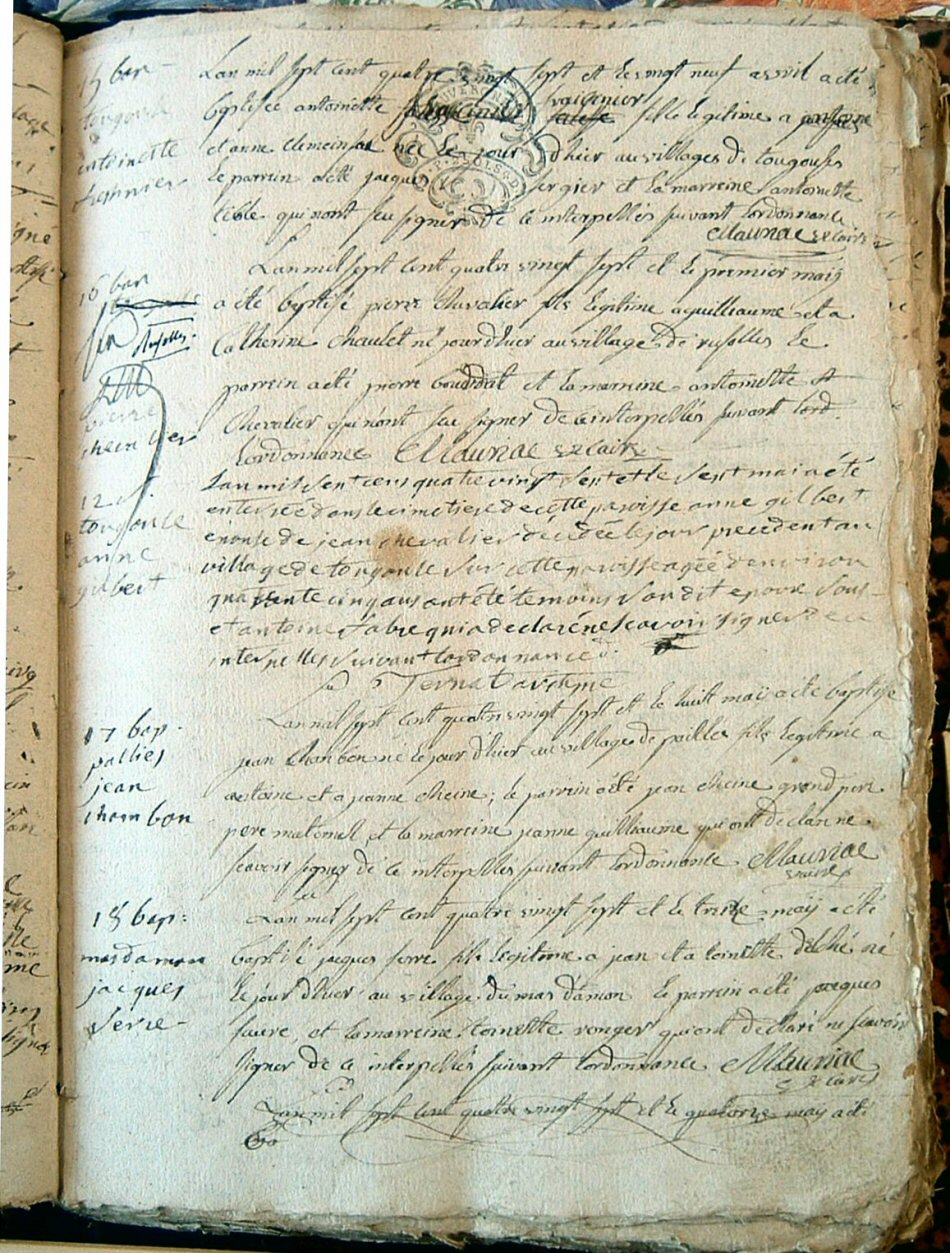 15 bap
tougouse
antoinette
Lan mil sept cent quatre vingt sept et le vingt neuf avril a été
baptisée antoinette fille legitime a
et anne née le jour dhier au villages de tougouse
le parrein a été jacque et la marreine antoinette
qui nont seu signer de ce interpellés suivant lordonnance
Mauriac vicaire
16 bap
rufolles
pierre
chevalier
Lan mil sept cent quatre vingt sept et le premier maij
a été baptisé pierre Chevalier fils legitime a guilliaume et a
Catherine Chaulet né jour dhier au village de rufolles le
parrein a été pierre et la marreine antoinette
Chevalier qui nont seu signer de ce interpellés suivant lord
lordonnance Mauriac vicaire
12 s.
tougouse
anne
gilbert
Lan mil sept cens quatre vingt sept et le sept mai a été
enterrée dans le cimetiere de cette paroisse anne gilbert
epouse de jean chevalier décédée le jour precedent au
village de tougouse sur cette paroisse agée denviron
quarante cinq ans ont été temoins sondit epoux sous
et antoine fabre qui a declaré ne scavoir signer de ce
interpellés suivant lordonnance
17 bap
pallies
jean
chambon
Lan mil sept cent quatre vingt sept et le huit maij a été baptisé
jean Chambon né le jour dhier au village de pailles fils legitime a
antoine et a jeanne cheine; le parrein a été jean cheine grand pere
pere maternel et la marreine jeanne guilliaume qui ont declaré ne
scavoir signer de ce interpellés suivant lordonnance Mauriac
vicaire
18 bap:
mas damon
jacques
serre
Lan mil sept cent quatre vingt sept et le treize maij a été
baptisé jacques serre fils legitime a jean et a toinette delché né
le jour dhier au village du mas damon le parrein a été jacques
faure et la marreine toinette ronger qui ont declaré ne scavoir
signer de ce interpellés suivant lordonnance Mauriac
vicaire
Lan mil sept cent quatre vingt sept et le quatorze maij a été
ba